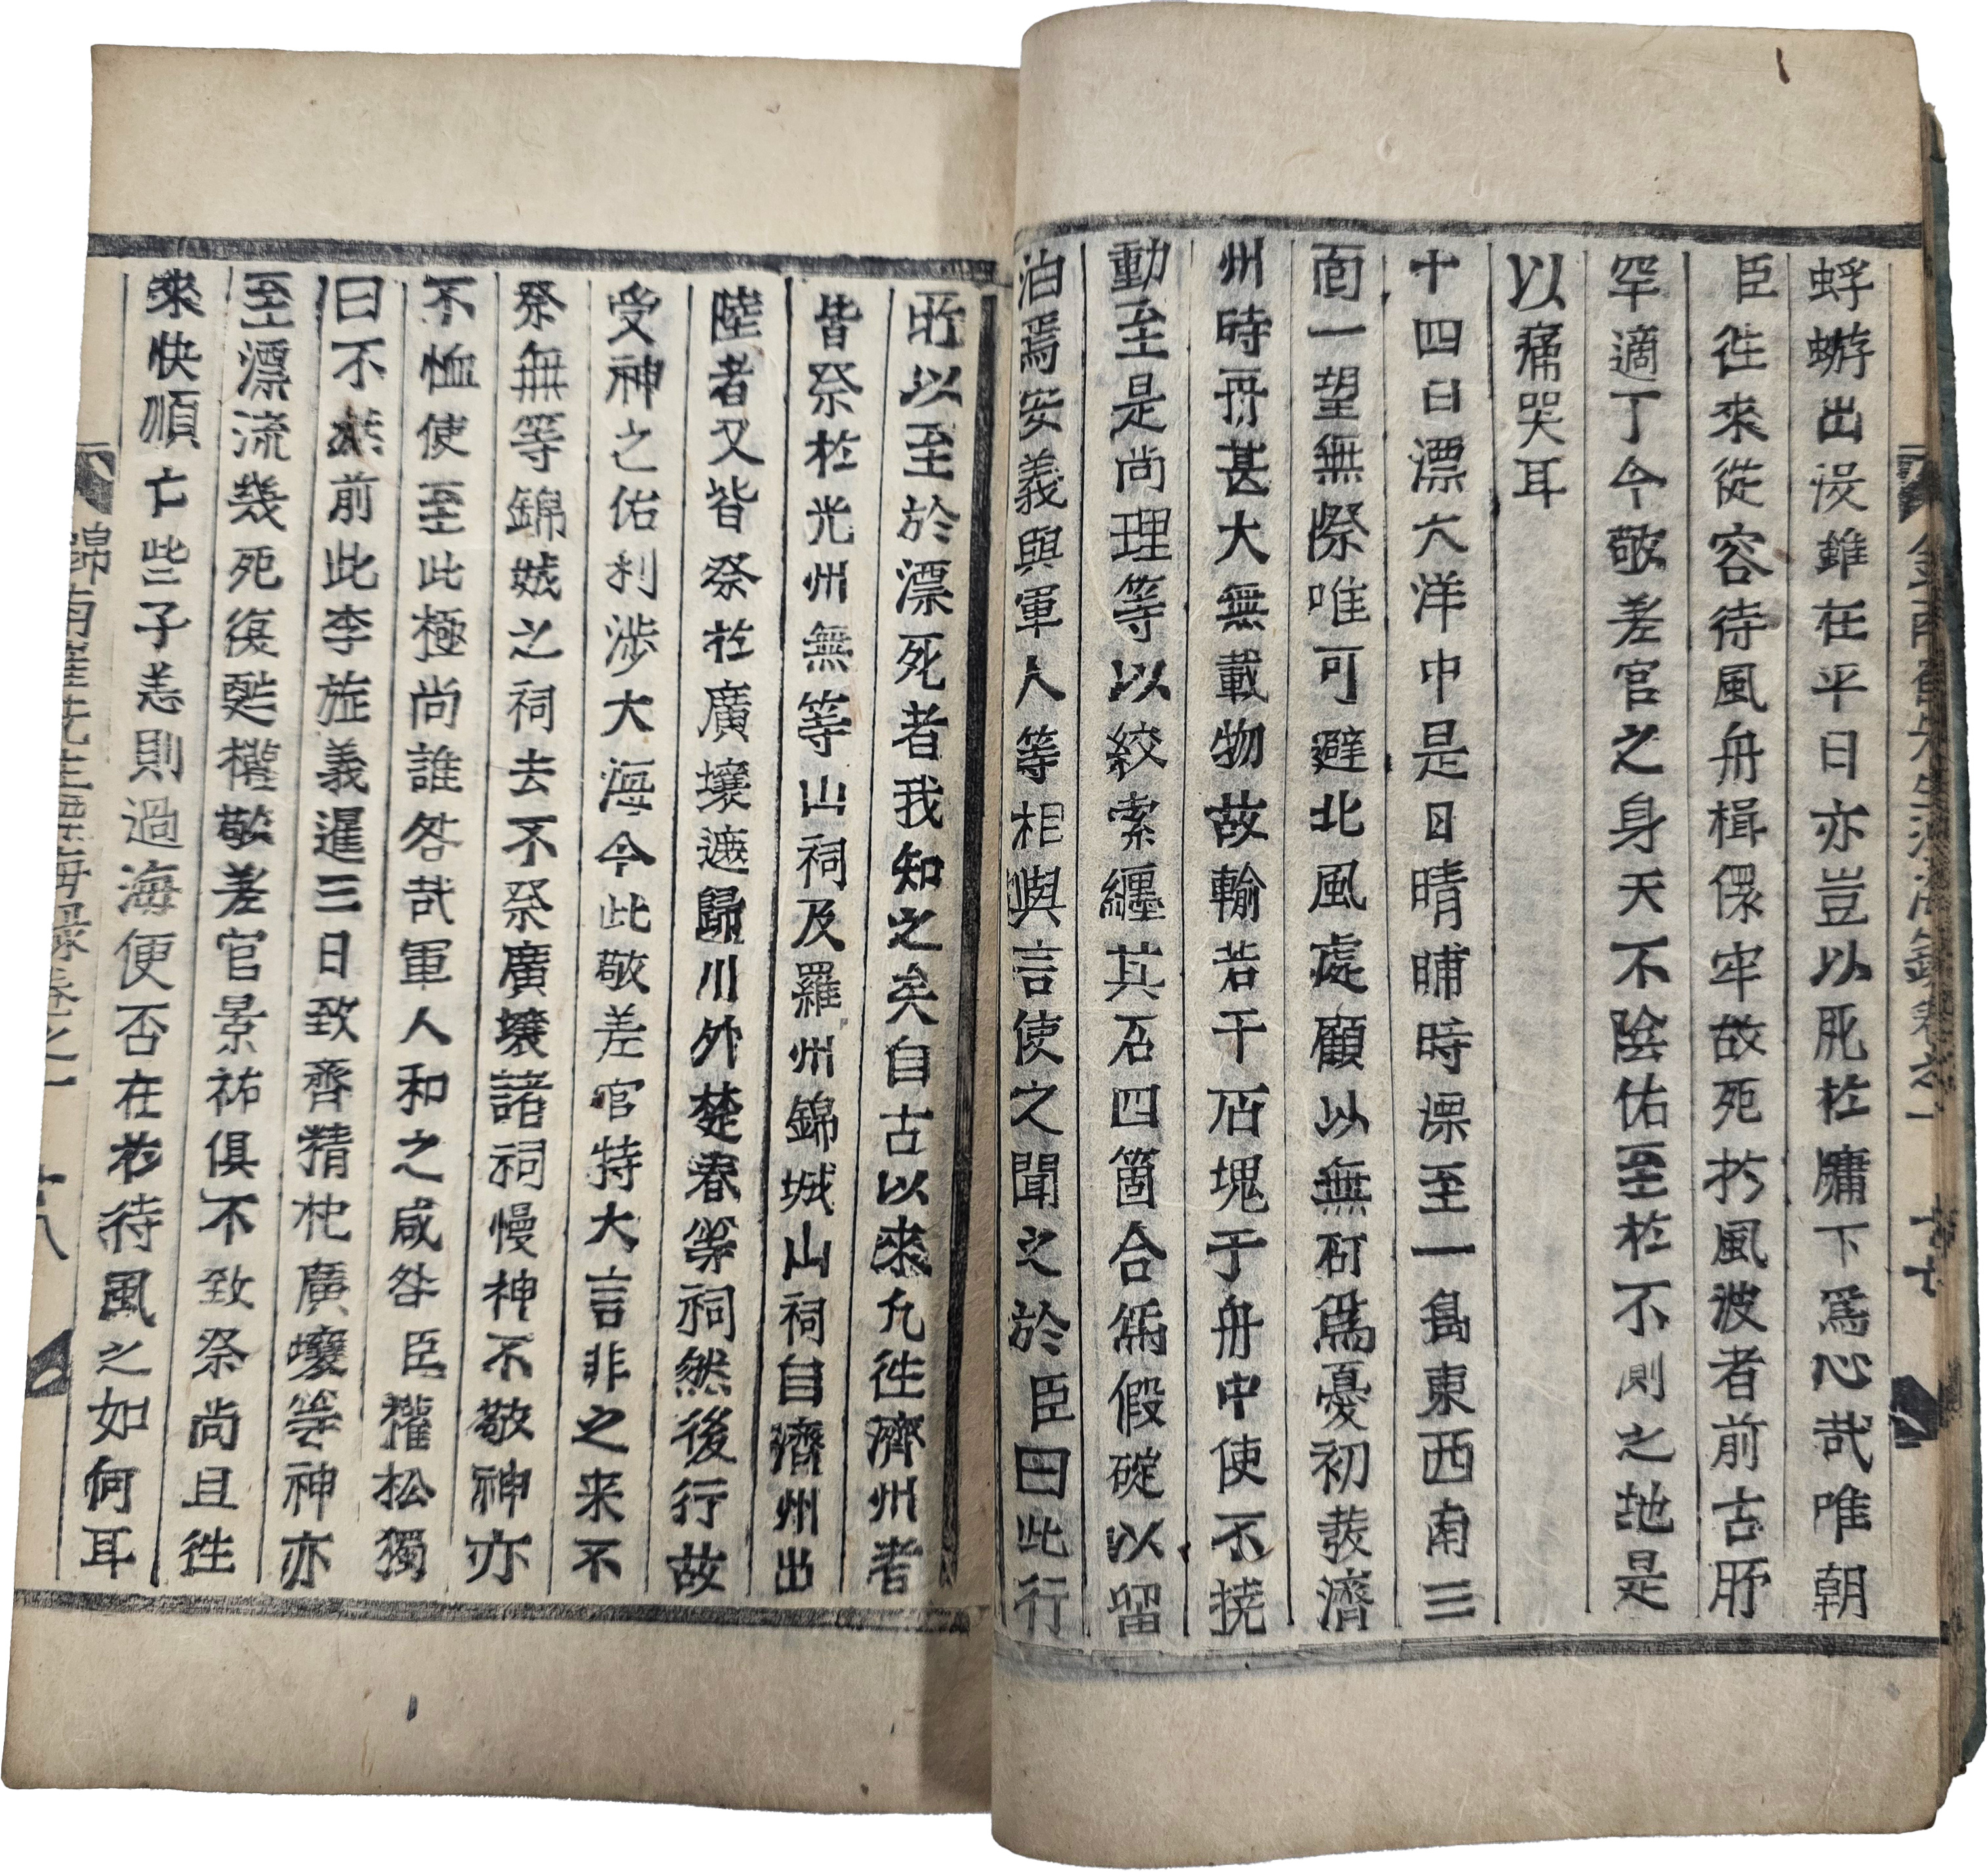 蜉蝣出沒雖在平日亦豈以死於牖下爲心哉唯朝
臣徃來從容待風舟楫偎牢故死扵風波者前古所
罕適丁今敬差官之身天不陰佑至扵不測之地是
以痛哭耳
十四日漂大洋中是日晴晡時漂至一島東西南三
面一望無際唯可避北風處顧以無矴爲憂初發濟
州時舟甚大無載物故輸若干石塊于舟中使不撓
動至是尚理等以絞索纏其石四箇合爲假碇以留
泊焉安義與軍人等相與言使之聞之於臣曰此行
所以至於漂死者我知之矣自古以來凡徃濟州者
皆祭於光州無等山祠及羅州錦城山祠自濟州出
陸者又皆祭於廣壤遮歸川外楚春等祠然後行故
受神之佑利涉大海今此敬差官特大言非之来不
祭無等錦城之祠去不祭廣壤諸祠慢神不敬神亦
不恤使至此極尚誰咎哉軍人和之咸咎臣權松獨
曰不然前此李旌義暹三日致齊精祀廣壤等神亦
至漂流幾死復甦權敬差官景祐俱不致祭尚且徃
來快順亡些子恙則過海便否在於待風之如何耳
錦南崔先生漂海録卷之一 十八